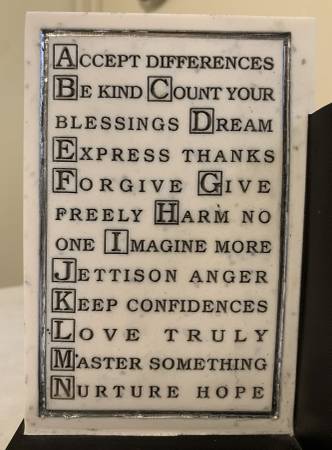 ACCEPT DIFFERENCES
BE KIND COUNT YOUR
BLESSINGS DREAM
EXPRESS THANKS
FORGIVE GIVE
FREELY HARM NO
ONE IMAGINE MORE
JETTISON ANGER
KEEP CONFIDENCES
LOVE TRULY
MASTER SOMETHING
NURTURE HOPE